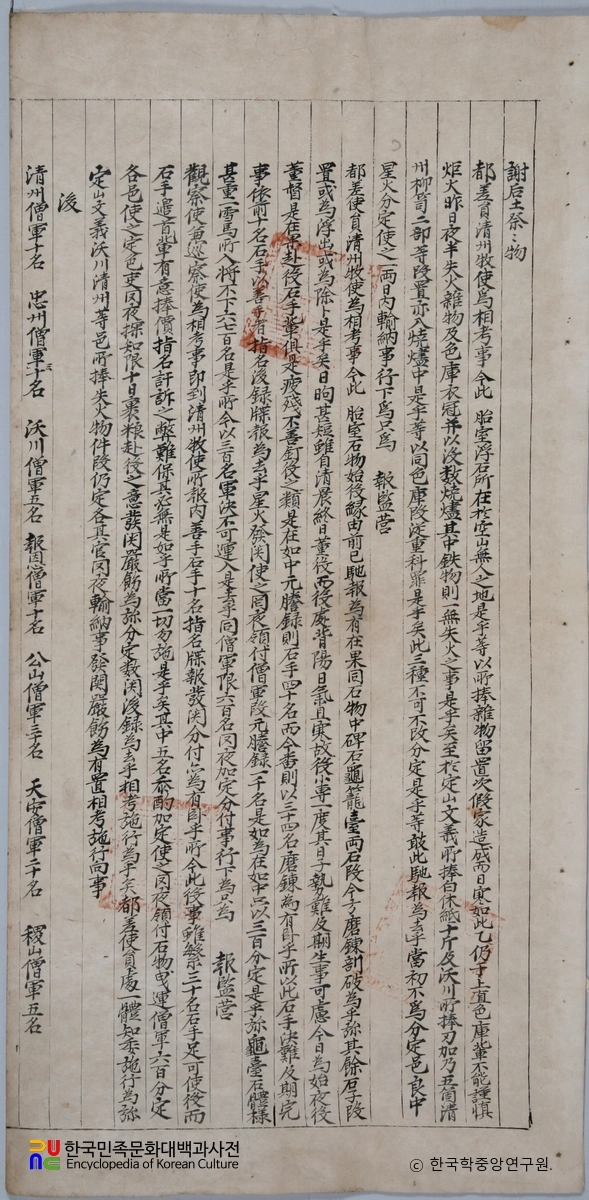 謝后土祭祭物
都差員淸州牧使爲相考事令此 胎室浮石所在於空山無人之地是乎等以所捧雜物留置次假家造成而日寒如此乙仍于上直色庫輩不能謹愼
炬火昨日夜半失火雜物及色庫衣冠并以沒數燒燼其中鉄物則一無失火之事是乎矣至於定山文義所捧白休紙十斤及沃川所捧刀加乃五箇淸
州柳笥二部等段置亦入燒燼中是乎等以同色庫段從重科罪是乎矣此三種不可不改分定是乎等敢此馳報爲去乎當初不爲分定邑良中
星火分定使之一兩日內輸納事行下爲只爲 報監營
都差使員淸州牧使爲相考事令此 胎室石物始役緣由前已馳報爲有在果同石物中碑石龜籠臺兩石段今方磨鍊剖破爲乎旀其餘石子段
置或爲浮出或爲除卜是乎矣日晷甚短雖自淸晨終日董役而役處背陽日氣且寒故役小專一度其日子勢難及期生事可慮今日爲始夜役
董督是在果赴役石手輩俱是疲殘不善釘役之類是在如中元謄錄則石手四十名而今番則以三十四名磨鍊爲有臥乎所以此石手決難及期完
事依前十名石手以善手者指名後錄牒報爲去乎星火發関使之罔夜領付僧軍段元謄錄一千名是如爲在如中只以三百分定是乎旀龜臺石體樣
甚重一雪馬所入將不下六七百名是乎所令以三百名軍決不可運入是去乎同僧軍限六百名罔夜加定分付事行下爲只爲 報監營
觀察使兼巡察使爲相考事卽到淸州牧使所報內善手石手十名指名牒報發関分付亦爲有臥乎所令此役事雖繁三十名石手足可使役而
石手邊首輩有意捧價指名訐訴之弊難保其必無是如乎所當一切勿施是乎矣其中五名叅酌加定使之罔夜領付石物曳運僧軍六百分定
各邑使之定色吏罔夜探知限十日裹粮赴役之意發関嚴飭爲旀分定數関後錄爲去乎相考施行爲乎矣都差使員處一體知委施行爲旀
定山文義沃川淸州等邑所捧失火物件段仍定各其官罔夜輸納事發関嚴飭爲有置相考施行向事
後
淸州僧軍十名 忠州僧軍十名 沃川僧軍五名 報恩僧軍十名 公山僧軍三十名 天安僧軍二十名 稷山僧軍五名
한국민족문화대백과사전
Encyclopedia of Korean Culture
ⓒ 한국학중앙연구원.